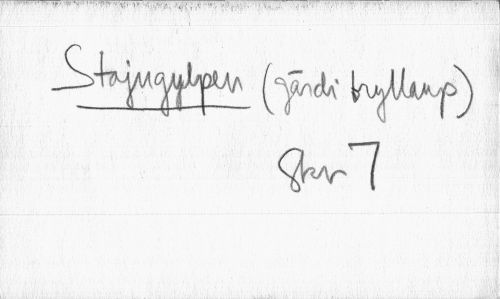 Stajngylpen (gārdi bryllaup)
Skr 7